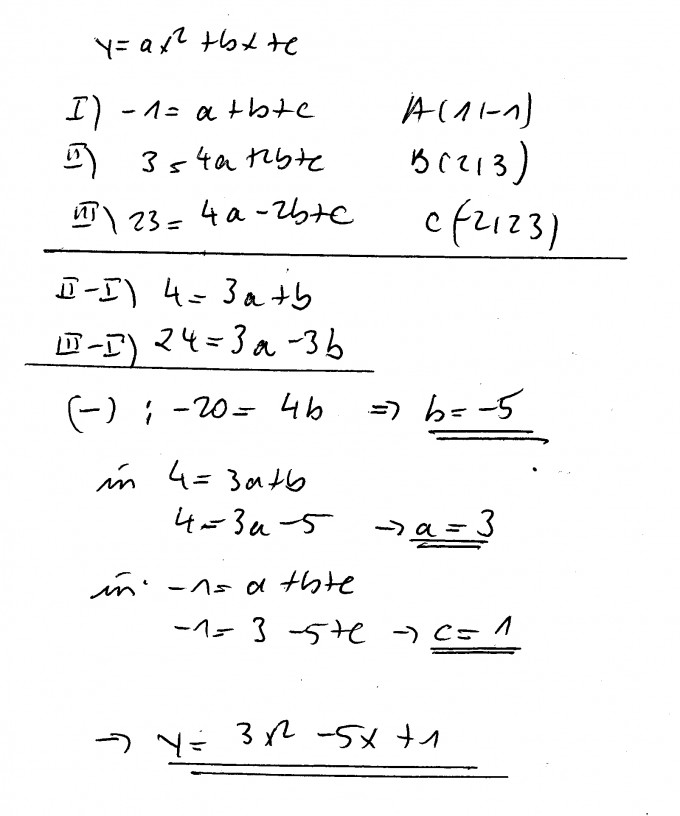 y = ax² + bx + c
I) -1 = a + b + c A(1|-1)
II) 3 = 4a + 2b + c B(2|3)
III) 23 = 4a - 2b + c C(-2|23)
II-I) 4 = 3a + b
III-I) 24 = 3a - 3b
(-) : -20 = 4b => b = -5
in 4 = 3a + b
4 = 3a - 5 → a = 3
in -1 = a + b + c
-1 = 3 - 5 + c → c = 1
→ y = 3x² - 5x + 1